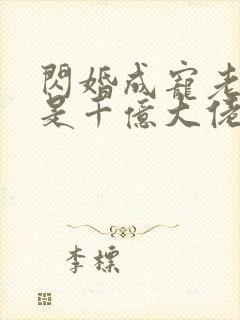 閃婚成寵老
是千億大佬
李標